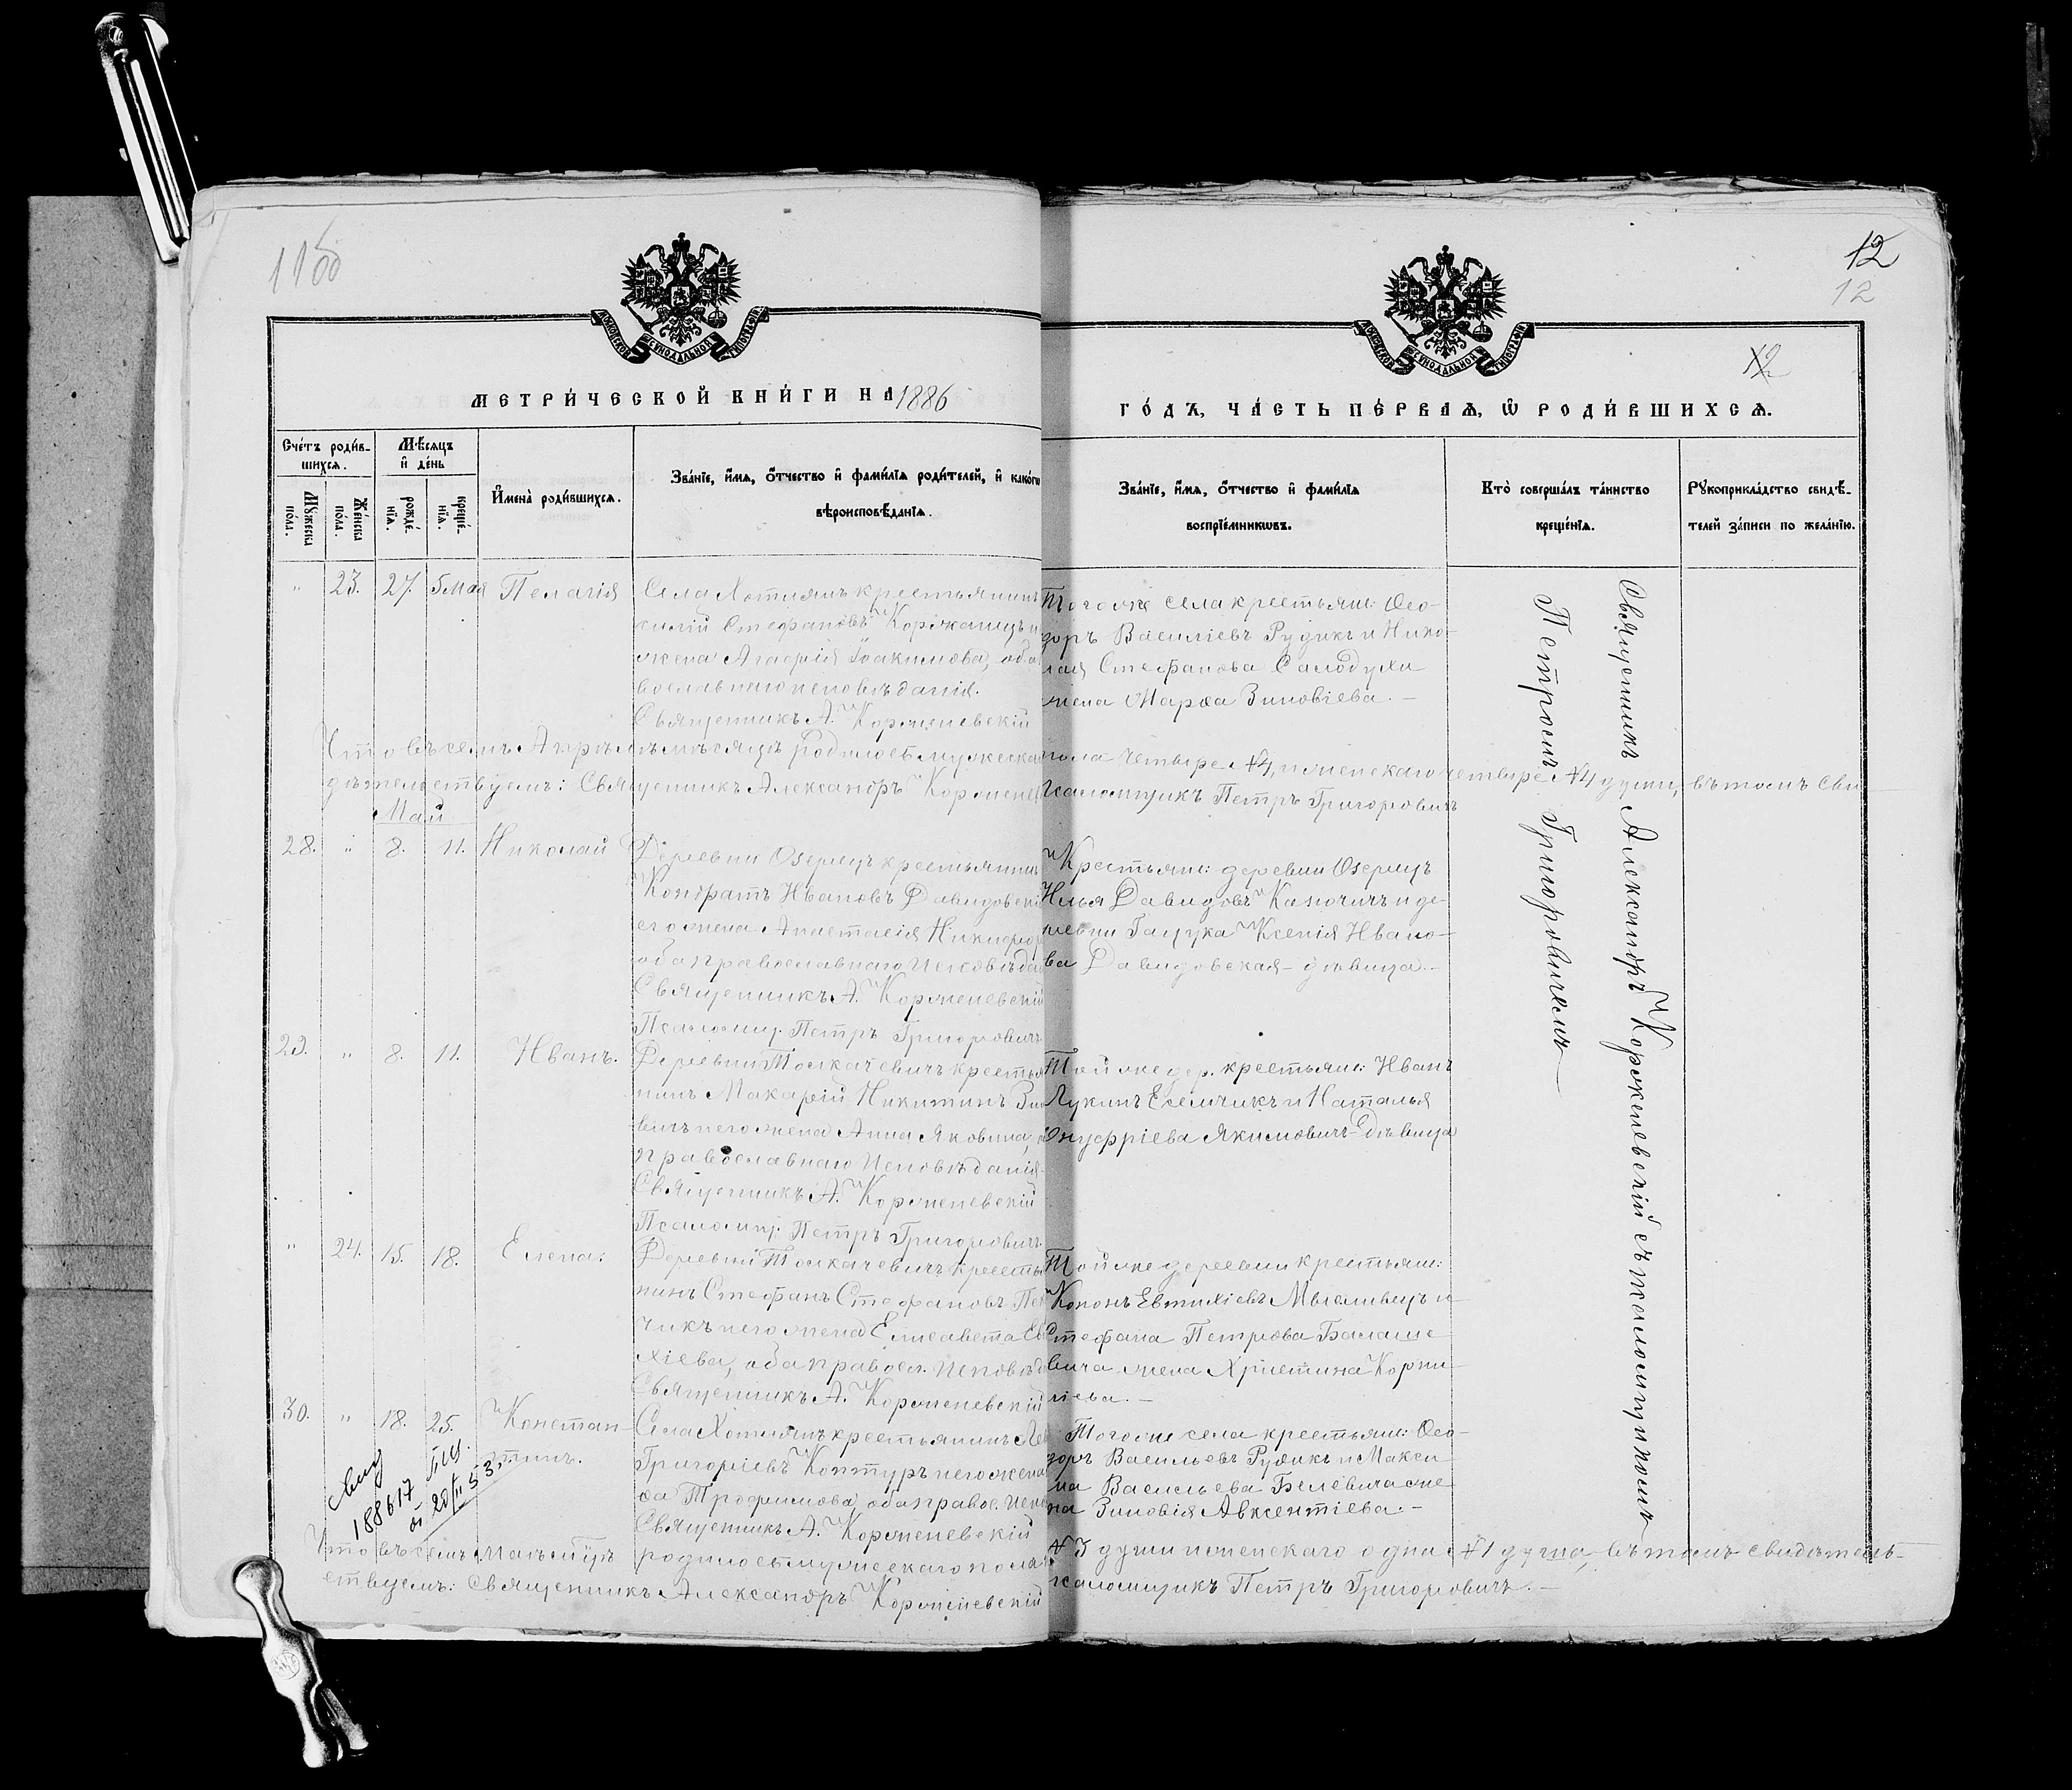 11об
12
12
12
МОСКОВСКОЙ СѴНОДАЛЬНОЙ ТИПОГРАФІИ
МОСКОВСКОЙ СѴНОДАЛЬНОЙ ТИПОГРАФІИ
МЕТРИ́ЧЕСКОЙ КНИ́ГИ НА 1886
ГО́ДЪ, ЧА́СТЬ ПЕ́РВАѦ, Ѡ҆ РОДИ́ВШИХСѦ.
Сче́тъ роди́в-
шихсѧ.
Мꙋ́жеска по́ла.
Же́нска по́ла.
Мѣ́сѧцъ
и҆ де́нь
рожде́-
нїѧ.
креще́-
нїѧ.
И҆мена̀ роди́вшихсѧ.
Зва́нїе, и҆́мѧ, ѻ҆́тчество и҆ фами́лїѧ роди́телей, и҆ како́гѡ
вѣроисповѣ́данїѧ.
Зва́нїе, и҆́мѧ, ѻ҆́тчество и҆ фами́лїѧ
воспрїе́мникѡвъ.
Кто̀ соверша́лъ та́инство
креще́нїѧ.
Рꙋкоприкла́дство свидѣ́-
телей за́писи по жела́нїю.
" 23. 27. 5 Мая Пелагія
Села Хотлянъ крестьянинъ
силій Стефановъ Коржанецъ и
жена Агафія Іоакимова, оба
вославнаго исповѣданія.
Священникъ А. Корженевскій
Того же села крестьян: Ѳео-
доръ Василіевъ Рудикъ и Нико-
лая Стефанова Самодухи
жена Марѳа Зиновіева. –
Что въ семъ Апрѣлѣ мѣсяцѣ родилось мужеска пола четыре № 4, и женскаго четыре № 4 души, въ томъ сви
дѣтельствуемъ: Священникъ Александръ Корженев
Псаломщикъ Петръ Григоровичъ
Май
28. " 8. 11. Николай
Деревни Озерецъ крестьянинъ
Кондратъ Ивановъ Давидовскі
его жена Анастасія Никифор
оба православнаго исповѣда
Священникъ А. Корженевскій
Псаломщ. Петръ Григоровичъ
Крестьян: деревни Озерецъ
Илья Давидовъ Каночичъ и де-
ревни Гацука Ксенія Ивано-
ва Давидовская – дѣвица. –
29. " 8. 11. Иванъ.
Деревни Толкачевичъ крестья
нинъ Макарій Никитинъ Зин
вичъ и его жена Анна Яковина,
православнаго исповѣданія
Священникъ А. Корженевскій
Псаломщ. Петръ Григоровичъ
Той же дер. крестьян: Иванъ
Лукинъ Есемчикъ и Наталья
Онуфріева Якимовичъ – дѣвица
" 24. 15. 18. Елена.
Деревни Толкачевичъ крестья
нинъ Стефанъ Стефановъ Пет
чикъ и его жена Елисавета Ев
хіева, оба правосл. исповѣд
Священникъ А. Корженевскій
Той же деревни крестьян:
Кононъ Евтихіевъ Мысливецъ и
Стефана Петрова Балаше
вича жена Христина Корни-
ліева. –
30. " 18. 25. Констан-
тинъ.
Села Хотлянъ крестьянинъ Ле
Григоріевъ Контуръ и его жена
ѳа Трофимова, оба правос. испо
Священникъ А. Корженевскій
Того же села крестьян: Ѳео-
доръ Васильевъ Рудикъ и Макси
ма Васильева Белевича же
на Зиновія Авксентіева. –
188617
от 20/II 53.
Что въ семъ Маѣ м-цѣ родилось мужескаго пола № 3 души и женскаго одна № 1 душа, въ томъ свидѣтель-
ствуемъ: Священникъ Александръ Корженевскій
Псаломщикъ Петръ Григоровичъ. –
Священникъ Александръ Корженевскій съ псаломщикомъ
Петромъ Григоровичемъ